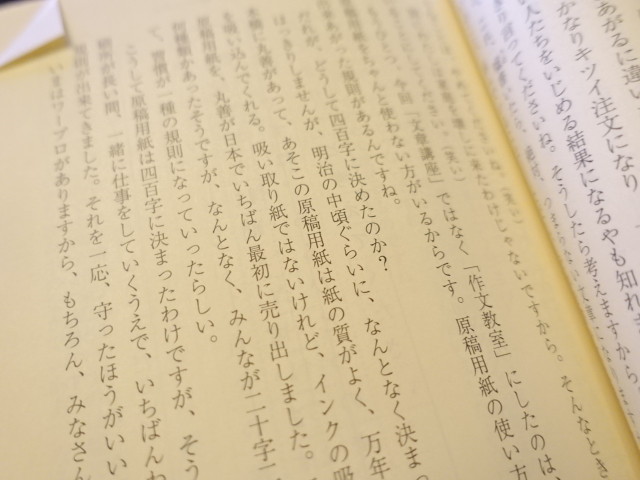 あがるに違い
かなりキツイ注文になり
人たちをいじめる結果になるやも知れ
き言ってくださいね。そうしたら考えますから
じゃないですから。そんなとき
今回「文章講座」ではなく「作文教室」にしたのは、
ちゃんと使わない方がいるからです。原稿用紙の使い方
った原則があるんですね。
どうして四百字に決めたのか?
はっきりしませんが、明治の中頃ぐらいに、なんとなく決まっ
丸善があって、あそこの原稿用紙は紙の質がよく、万年
を吸い込んでくれる。吸い取り紙ではないけれど、インクの吸
原稿用紙を、丸善が日本でいちばん最初に売り出しました。
何種類かあったそうですが、なんとなく、みんなが二十字二
て、習慣が一種の規則になっていったらしい。
こうして原稿用紙は四百字に決まったわけですが、そう
長い間、一緒に仕事をしていくうえで、いちばんわ
規則が出来てきました。それを一応、守ったほうがいい
いまはワープロがありますから、もちろん、みなさん